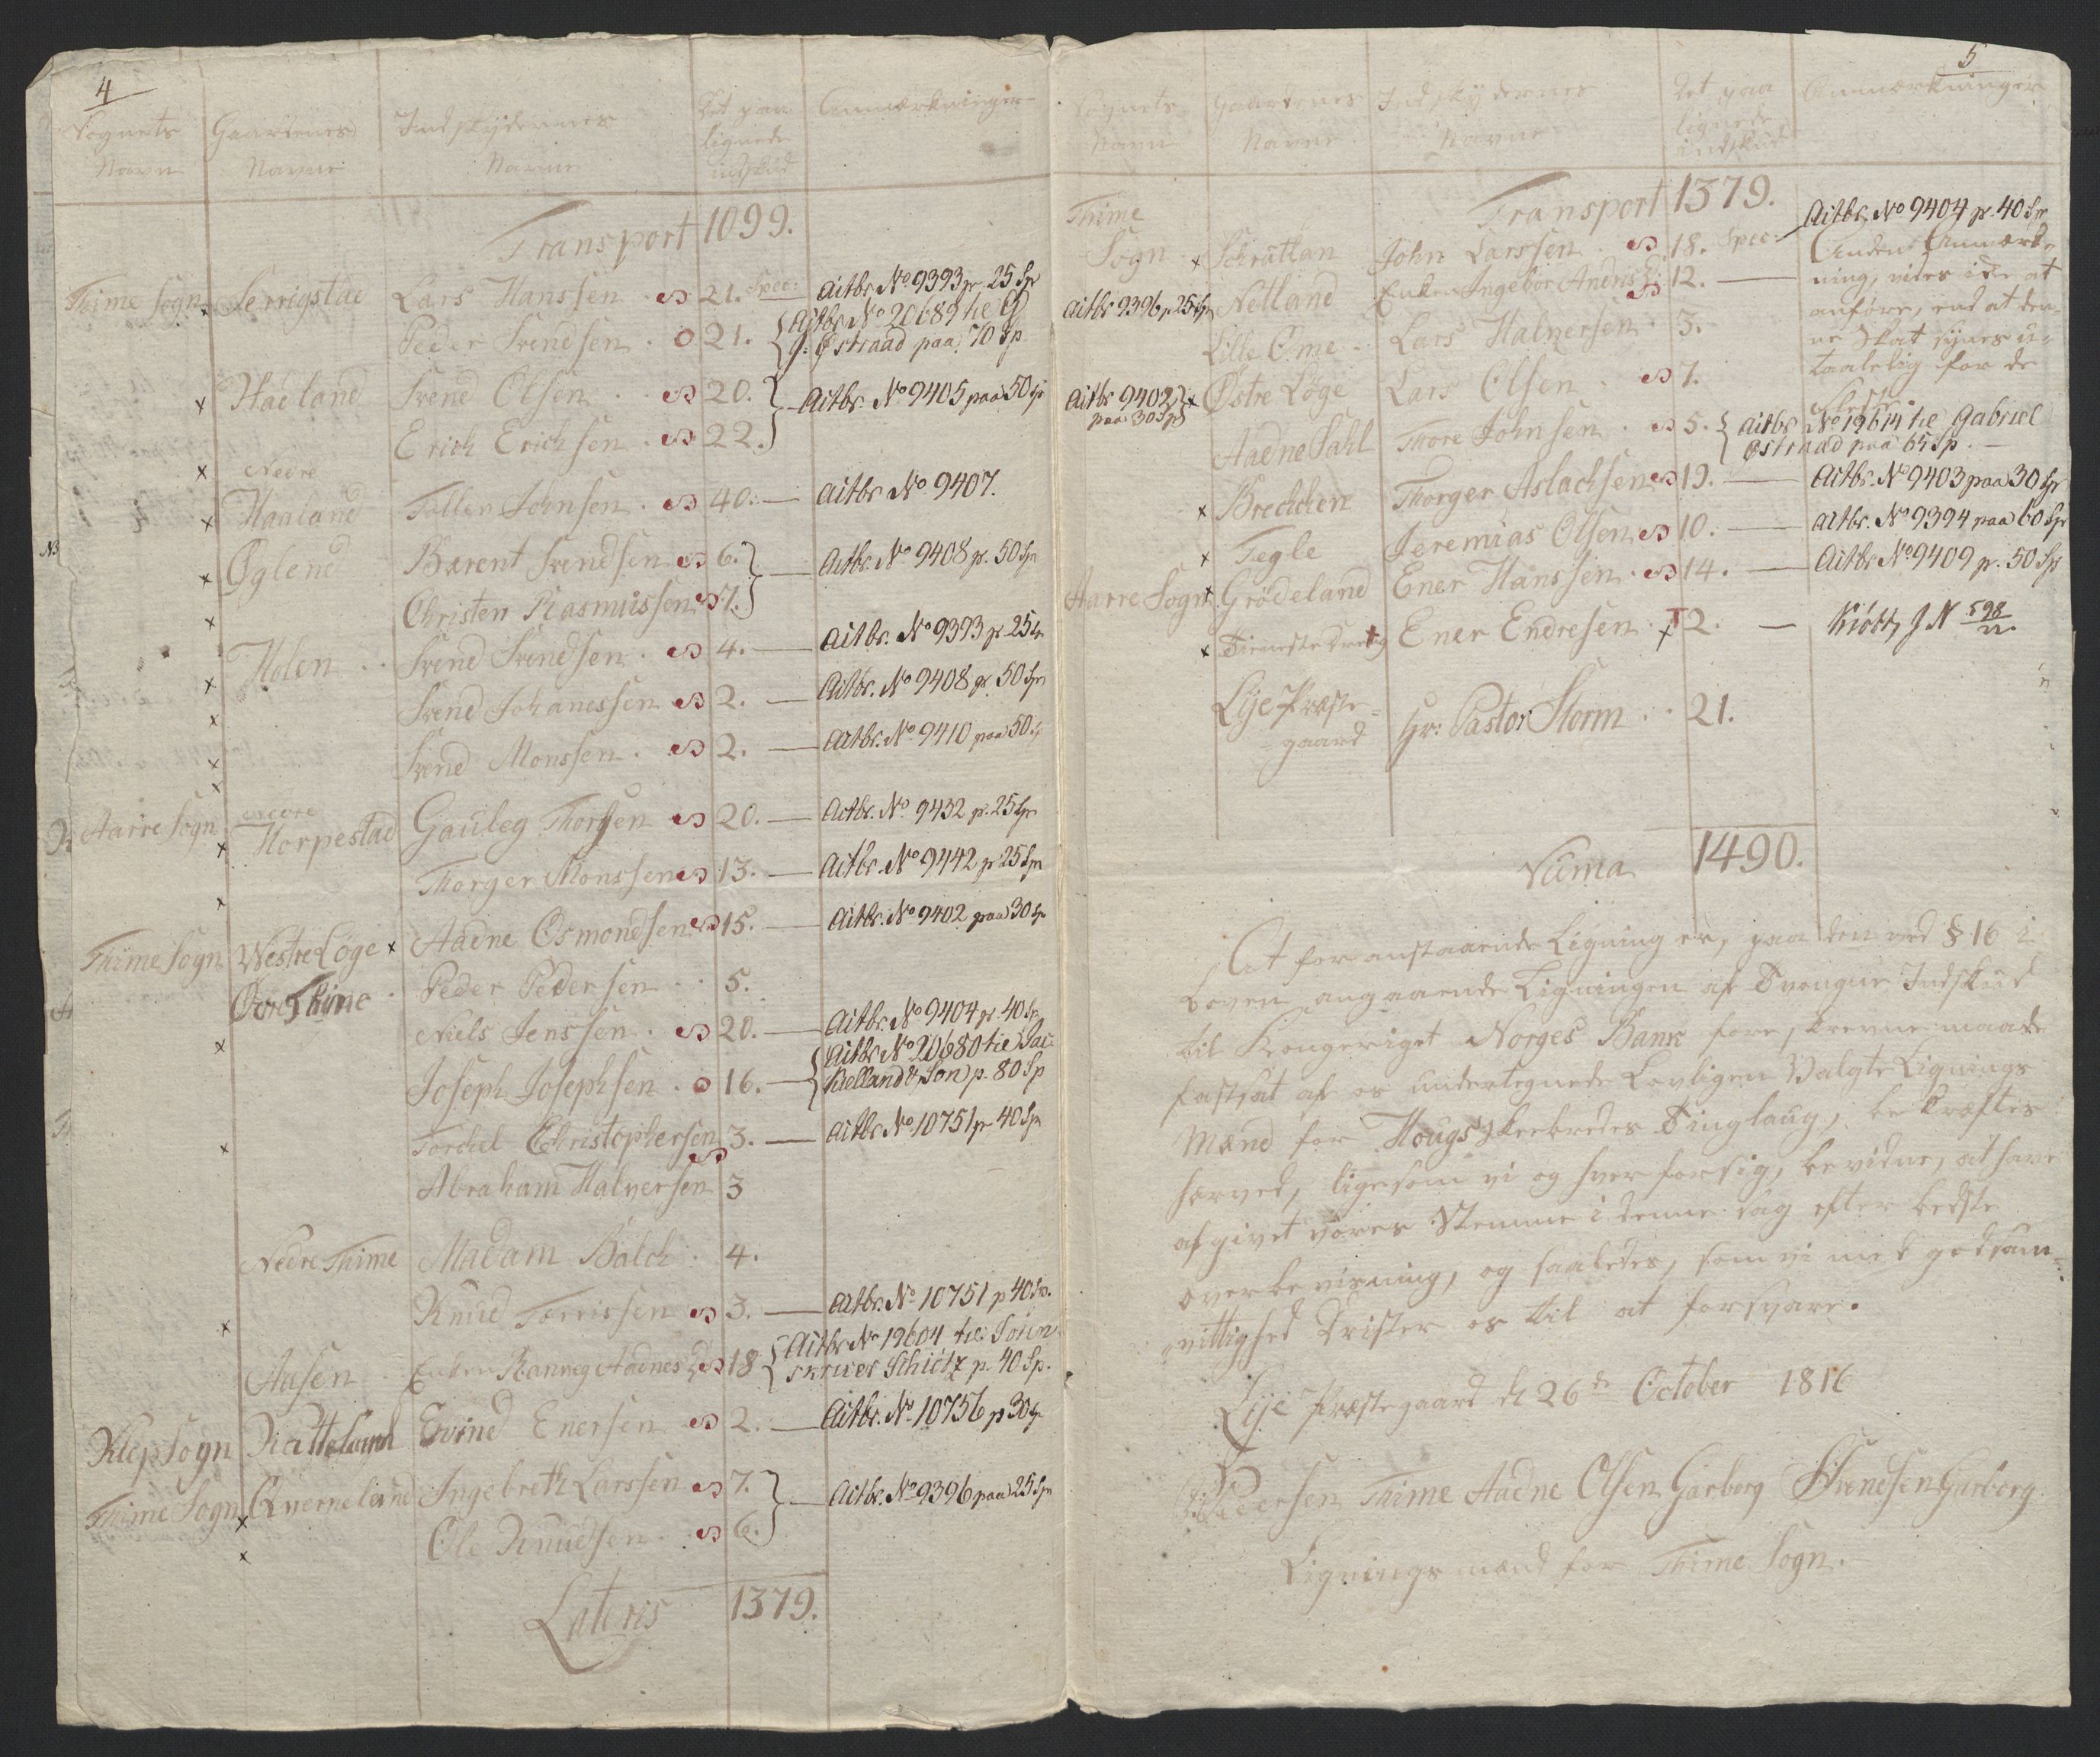 4
Sognets Navn
Gaardenes Navne
Indskydernes Navne
Det paa lignede indskud
Anmærkninger
Transport 1099.
Thime Sogn Serrigstad Lars Hanssen 21. Spec: Actbr. No 9393 pr. 25 Sp
Peder Svendsen 21. Actbr. No 20689 til G
G: Østraad paa 70 Sp
Haeland Svend Olsen 20.
Actbr. No 9405 paa 50 Sp
Erich Erichsen 22.
Nedre
Haaland Tollen Johnsen 40. Actbr. No 9407.
Øglend Bærent Svendsen 6.
Actbr. No 9408 p. 50 Sp
Christen Rasmussen 7.
Holen Svend Svendsen 4. Actbr. No 9393 p 25 Sp
Svend Johanessen 2. Actbr. No 9408 p. 50 Sp
Svend Monssen 2. Actbr. No 9410 paa 50
Aarre Sogn Nedre Horpestad Gauleg Thorsen 20. Actbr. No 9432 p. 25 Sp
Thorger Monssen 13. Actbr. No 9442 p 25 Sp
Thime Sogn Westre Löge Aadne Osmondsen 15. Actbr. No 9402 paa 30 Sp
Øvre Thime Peder Pedersen 5.
Niels Jenssen 20. Actbr. No 9404 p. 40 Sp
Joseph Josephsen 16. Actbr. No 20680 til Jac:
Kielland & Søn p. 80 Sp
Torchel Christophersen 3. Actbr. No 10751 p 40 Sp
Abraham Halversen 3
Nedre Thime Madam Balch 4.
Knud Torrissen 3. Actbr. No 10751 p 40 Sp.
Aasen Enken Ranveg Aadnes D 18 Actbr No 19604 til Soren
skriver Schiötz p. 40 Sp.
Klep Sogn Evind Enersen 2. Actbr. No 10756 p 30 Sp
Thime Sogn Qverneland Ingebreth Larssen 7.
Actbr. No 9396 paa 25 Sp
Ole Knudsen 6.
Lateris 1379.
5
Sognets Navn
Gaardenes Navne
Indskydernes Navne
Det paa lignede indskud
Anmærkninger
Transport 1379.
Actbr. No 9404 p. 40 Sp
Thime
Sogn Schrattan John Larssen 18. Spec:
Anden Anmærk-
ning, vides ikke at
anføre, end at den-
ne Skat synes u-
taalelig for de
fleste.
Actbr 9396 p 25 Sp Netland Enken Ingebor Andrus D: 12.
Lille Ome Lars Halversen 3.
Actbr 9402
paa 30 Sp Østre Löge Lars Olsen 7.
Aadne Sahl Thore Johnsen 5. Actbr No 19614 til Gabriel
Østraad paa 65 Sp.
Brechchen Thorger Aslachsen 19. Actbr. No 9403 paa 30 Sp
Tegle Jeremias Olsen 10. Actbr. No 9394 paa 60 Sp
Aarre Sogn Grödeland Ener Hanssen 14. Actbr. No 9409 p. 50 Sp
Tienestedreng Ener Endresen 2.
Lye Præste-
gaard Hr: Pastor Storm 21.
Suma 1490.
At foranstaaende Ligning er, paa den ved § 16 i
Loven angaaende Ligningen af Tvongne Indskud
til Kongeriget Norges Bank foreskrevne maade
fastsat af os undertegnede Lovligen Valgte Lignings
Mænd for Hougs Skeebredes Tinglaug, bekræftes
herved, ligesom vi og hver for sig, bevidne, at have
afgivet vores Stemme i denne sag efter bedste
overbeviisning, og saaledes, som vi med godsam-
vittighed drister os til at forsvare.
Lye Præstegaard d 26de October 1816
Pedersen Thime Aadne Olsen Garborg Svendsen Garborg
Ligningsmænd for Thime Sogn.